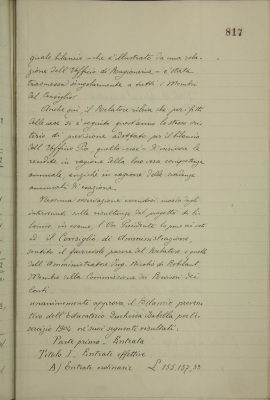 817
quale bilancio - che è illustrato da una rela-
zione dell'Ufficio di Ragioneria - è stata
trasmessa singolarmente a tutti i Membri
del Consiglio.
Anche qui, il Relatore rileva che per i fitti
delle case si è seguito quest'anno lo stesso cri-
terio di previsione adottato per il bilancio
dell'Ufficio Pio quello cioè di iscrivere le
rendite in ragione della loro vera competenza
annuale, anziché in ragione delle scadenze
annuali d'esazione.
Nessuna osservazione essendosi mossa dagli
intervenuti sulle risultanze del progetto di bi-
lancio in esame, il Vice Presidente lo pone ai voti
ed il Consiglio di Amministrazione,
sentito il favorevole parere del Relatore e quello
dell'Amministratore Ing. Nicolis di Robilant,
Membro della Commissione di Revisione dei
Conti
unanimemente approva il Bilancio preven-
tivo dell'Educatorio Duchessa Isabella per l'e-
sercizio 1904 nei suoi seguenti risultati:
Parte prima - Entrata
Titolo I - Entrate effettive
A) Entrate ordinarie L.